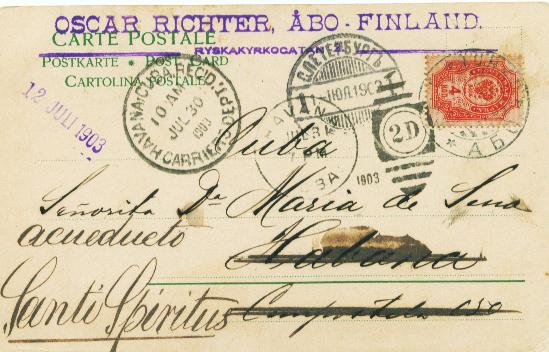 OSCAR RICHTER, ÅBO - FINLAND.
RYSKAKYRKOGATAN
CARTE POSTALE
POSTKARTE * POST CARD
CARTOLINA POSTALE
12 JULI 1903
HAVANA, CUBA, REC'D.
10 AM
JUL 30
1903
CARRIER
С.ПЕТЕРБУРГЪ
1
1
4
ÅBO
HAVANA
2D
1903
Cuba
Señorita Da. Maria de Sena
acueducto
Habana
Sancti Spiritus
Compostela